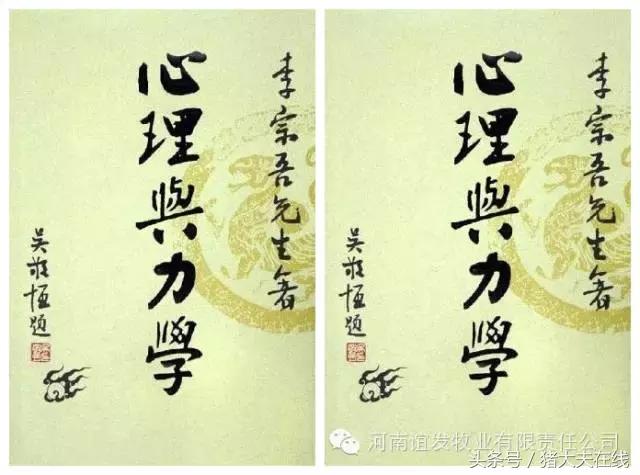 李宗吾先生著
心理與力學
吳敬恆題
李宗吾先生著
心理與力學
吳敬恆題
河南谊发牧业有限责任公司
头条号／猪大夫在线